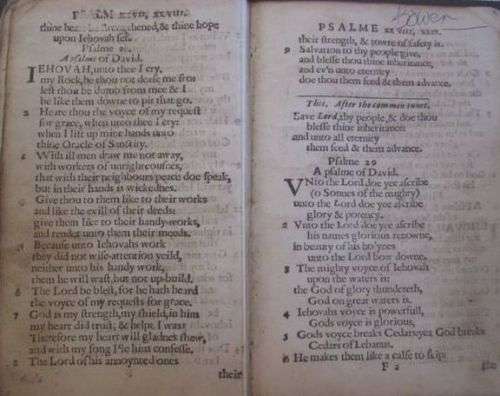 PSALM XXVII, XXVIII.
thine heart strengthened, & thine hope
upon Iehovah set.
Psalme 28.
A psalme of David.
IEHOVAH, unto thee I cry,
my Rock, be thou not deafe me fro:
lest thou be dumb from mee & I
be like them downe to pit that go.
2 Heare thou the voyce of my request
for grace, when unto thee I cry:
when I lift up mine hands unto
thine Oracle of Sanctity.
3 With ill men draw me not away,
with workers of unrighteousnes,
that with their neighbours peace doe speak,
but in their hands is wickednes.
4 Give thou to them like to their works
and like the evill of their deeds:
give them like to their handy-works,
and render unto them their meeds.
5 Because unto Iehovahs work
they did not wise-attention yeild,
neither unto his handy work,
them he will wast, but not up-build.
6 The Lord be blest, for he hath heard
the voyce of my requests for grace.
7 God is my strength, my shield, in him
my heart did trust, & helpt I was:
Therefore my heart will gladnes shew,
and with my song I'le him confesse.
8 The Lord of his annoynted ones
their
PSALME XXVIII, XXIX.
their strength, & towre of safety is.
9 Salvation to thy people give,
and blesse thou thine inheritance,
and ev'n unto eternity
doe thou them feed & them advance.
This, After the common tunes.
Save Lord, thy people, & doe thou
blesse thine inheritance
and unto all eternity
them feed & them advance.
Psalme 29
A psalme of David.
VNto the Lord doe yee ascribe
(o Sonnes of the mighty)
unto the Lord doe yee ascribe
glory & potency.
2 Vnto the Lord doe yee ascribe
his names glorious renowne,
in beauty of his holynes
unto the Lord bow downe.
3 The mighty voyce of Iehovah
upon the waters is:
the God of glory thundereth,
God on great waters is.
4 Iehovahs voyce is powerfull,
Gods voyce is glorious,
5 Gods voyce breaks Cedars: yea God breaks
Cedars of Lebanus.
6 He makes them like a calfe to skip:
F 2